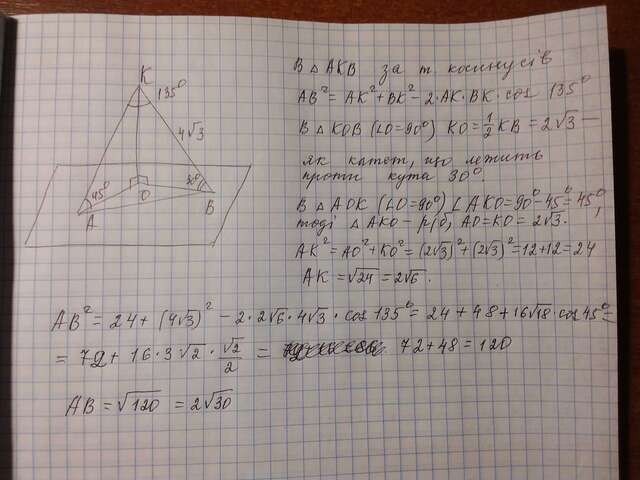 K
135°
4√3
45°
30°
O
A
B
В △ AKB за т. косинусів
AB² = AK² + BK² - 2·AK·BK·cos 135°
В △ KOB (∠O=90°) KO = 1/2 KB = 2√3 —
як катет, що лежить
проти кута 30°.
В △ AOK (∠O=90°) ∠AKO = 90°-45° = 45°,
тоді △ AKO - р/б, AO=KO= 2√3.
AK² = AO² + KO² = (2√3)² + (2√3)² = 12+12 = 24
AK = √24 = 2√6.
AB² = 24 + (4√3)² - 2·2√6·4√3·cos 135° = 24 + 48 + 16√18·cos 45° =
= 72 + 16·3√2·√2/2 = 72+48 = 120
AB = √120 = 2√30